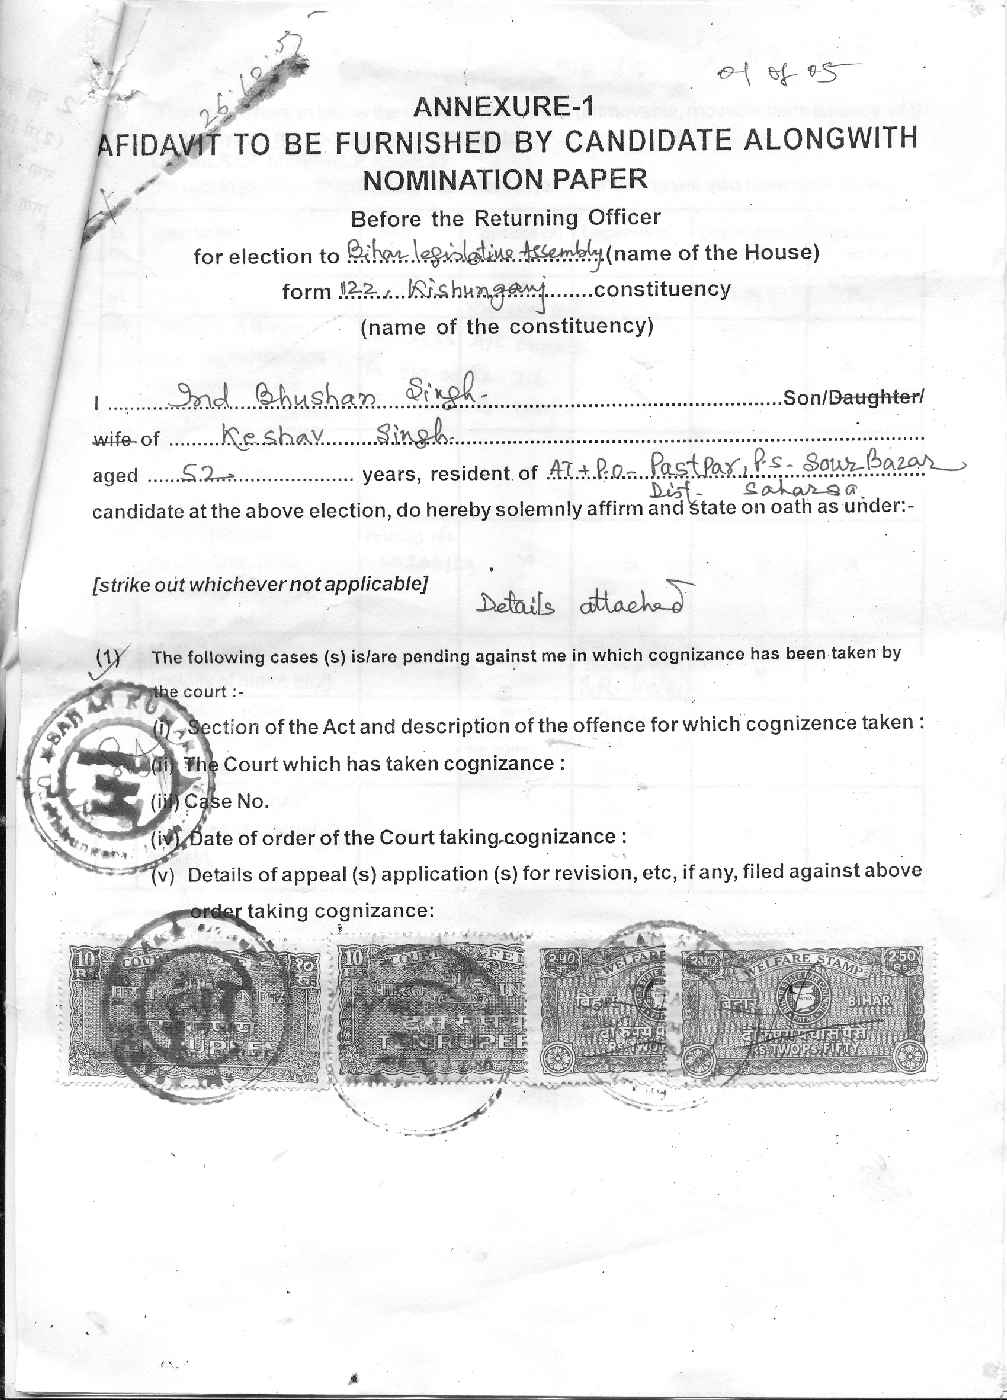 01 of 05
ANNEXURE-1
AFIDAVIT TO BE FURNISHED BY CANDIDATE ALONGWITH
NOMINATION PAPER
Before the Returning Officer
for election to Bihar legislative Assembly (name of the House)
form 122, Kishunganj constituency
(name of the constituency)
I Ind Bhushan Singh Son/Daughter/
wife of Keshav Singh
aged 52 years, resident of AT+P.O- Pastpar, P.S- Sour Bazar
Dist- Saharsa
candidate at the above election, do hereby solemnly affirm and state on oath as under:-
[strike out whichever not applicable]
Details attached
(1) The following cases (s) is/are pending against me in which cognizance has been taken by
the court :-
(i) Section of the Act and description of the offence for which cognizence taken :
(ii) The Court which has taken cognizance :
(iii) Case No.
(iv) Date of order of the Court taking cognizance :
(v) Details of appeal (s) application (s) for revision, etc, if any, filed against above
order taking cognizance:
10 10 WELFARE WELFARE STAMP 2.50
BIHAR
TEN RUPEES
RS TWO PS FIFTY